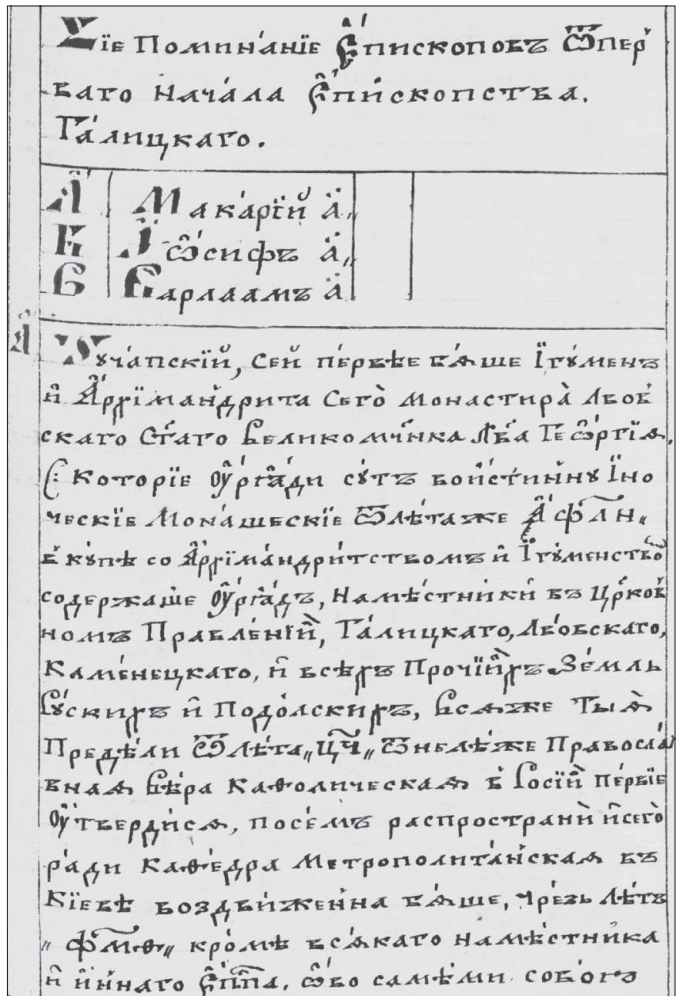 Сїе Поминаніе Е҆пископовъ Ѿпер
ваго начала Е҆пископства.
Галицкаго.
А҃ Макарїй а҃,,
Б Іѡсифъ а҃,,
В Варлаамъ а҃
А҃ Тучапскїй, Сей первѣе бѧше Ігуменъ
и҆ А҆рхїмандрита Сего Монастира Лвов
скаго Ст҃аго Великомч҃нка Лва Геѡргїѧ,
(: Которїе ᲂу҆рѧди суть воистинну Іно
ческїе Монашескїе Ѿлѣтаже ҂аф҃лн,,
Вкупѣ со А҆рхїмандритствомъ и҆ Ігуменство
содержаше ᲂу҆рѧдъ, Намѣстники въ Цр҃ков
номъ Правленїи, Галицкаго, Лвовскаго,
Каменецкаго, и҆ всѣхъ Прочїихъ Земль
Рускихъ и҆ Подолскихъ, Всѧже Тыѧ
Предѣли Ѿлѣта,,цч҃,, Ѿнелѣже Правосла
внаѧ Вѣра Каѳолическаѧ в Росїи первїе
ᲂу҆твердисѧ, посемъ распространи исего
ради Каѳедра Метрополитанскаѧ въ
Кїевѣ воздвиженна бѧше, чрезь лѣтъ
,,фм҃ѳ,, кромѣ всѧкаго намѣстника
и҆ иннаго Е҆пп҃а. ѡво самѣми собою